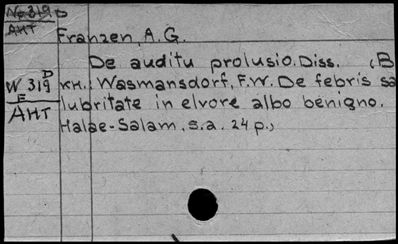 No 319 D
АНТ
Franzen, A.G.
De auditu prolusio. Diss. (В
кн.: Wasmansdorf, F.W. De febris sa
W 319 D
E
lubritate in elvore albo benigno.
АНТ
Halae-Salam, s.a. 24 p.,